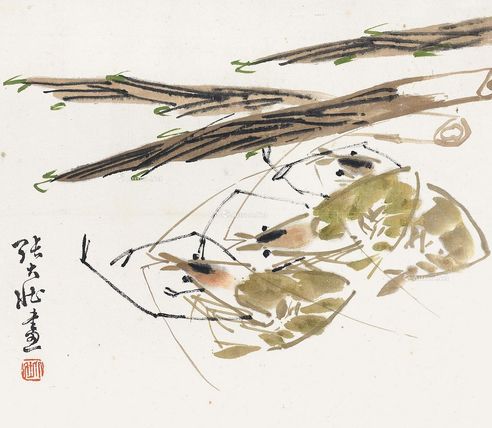 張大壯畫